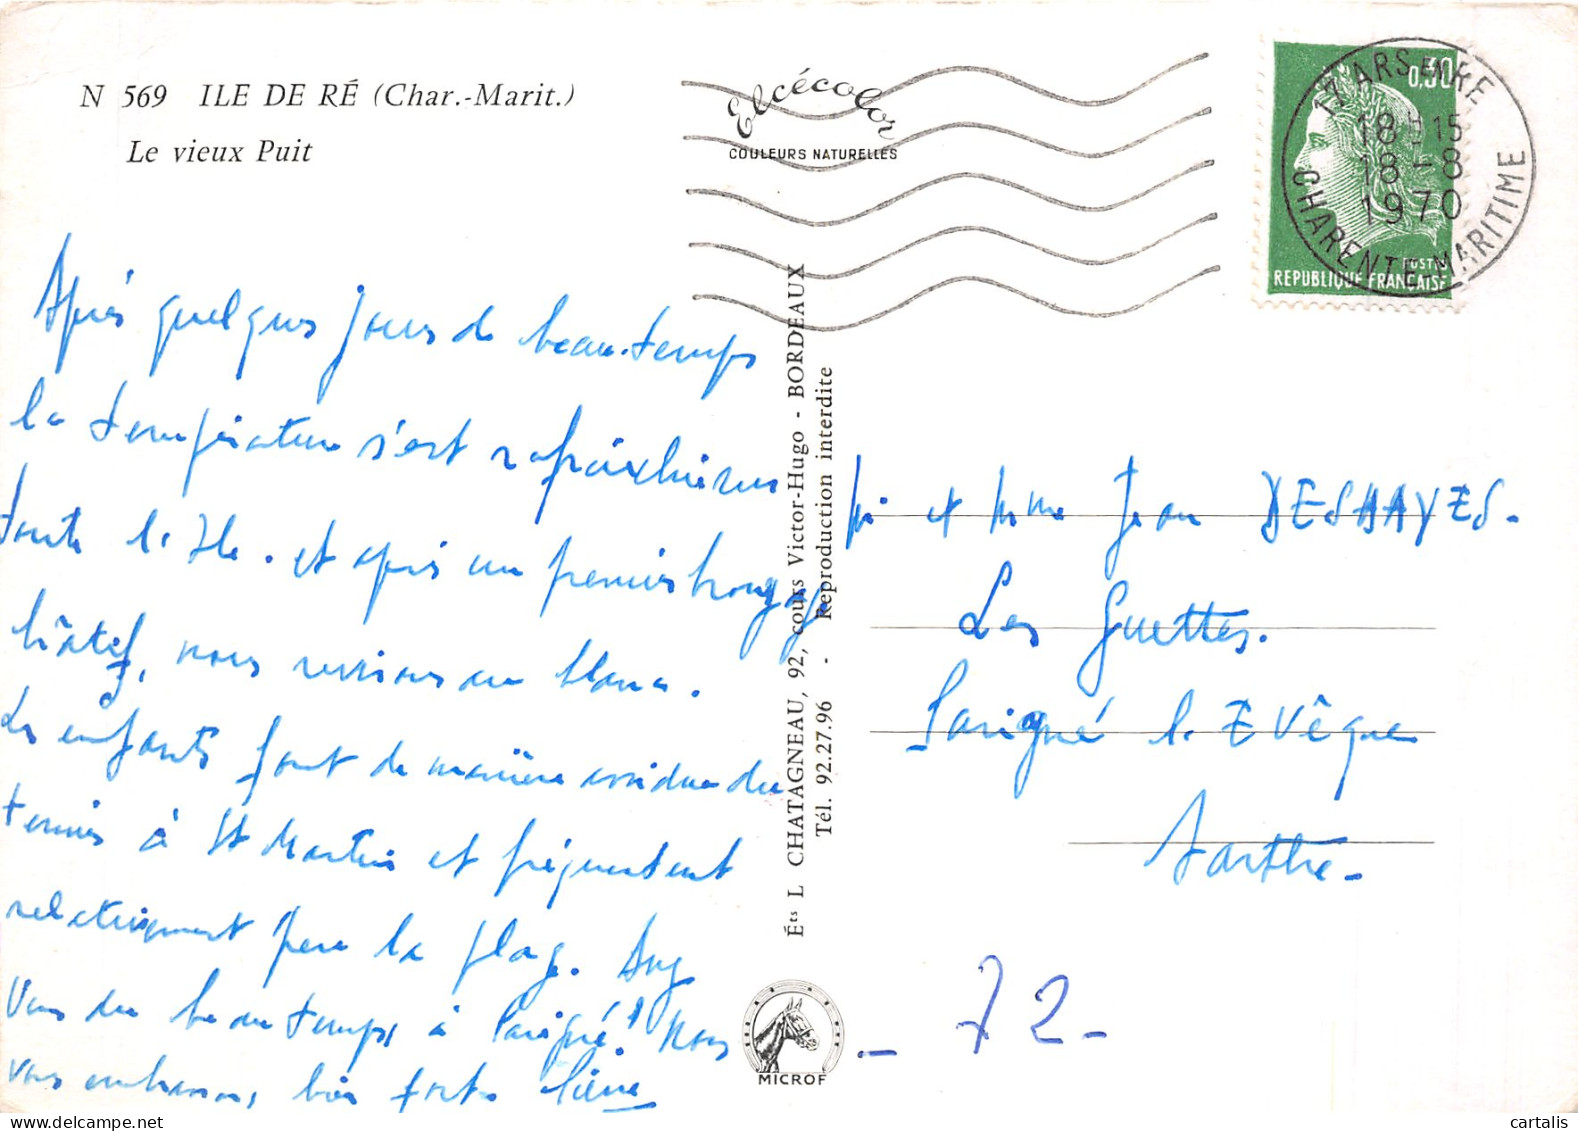 N 569 ILE DE RÉ (Char.-Marit.)
Le vieux Puit
Elcécolor
COULEURS NATURELLES
17 ARS EN RE
18 H 15
18 - 8
1970
CHARENTE-MARITIME
0,30
POSTES
REPUBLIQUE FRANÇAISE
Après quelques jours de beau temps
la température s'est rafraichie sur
toute l'Ile. et après un premier
hâtif, nous revivons au
Les enfants font de manière assidue du
tennis à St Martin et fréquentent
relativement peu la plage. Avez
Vous du beau temps à Parigné? Nous
vous embrassons bien fort
Éts L CHATAGNEAU, 92, cours Victor-Hugo - BORDEAUX
Tél. 92.27.96 - Reproduction interdite
Mr et Mme Jean DESHAYES.
Les Guettes.
Parigné l'Evêque
Sarthe.
- 72 -
MICROF
cartalis